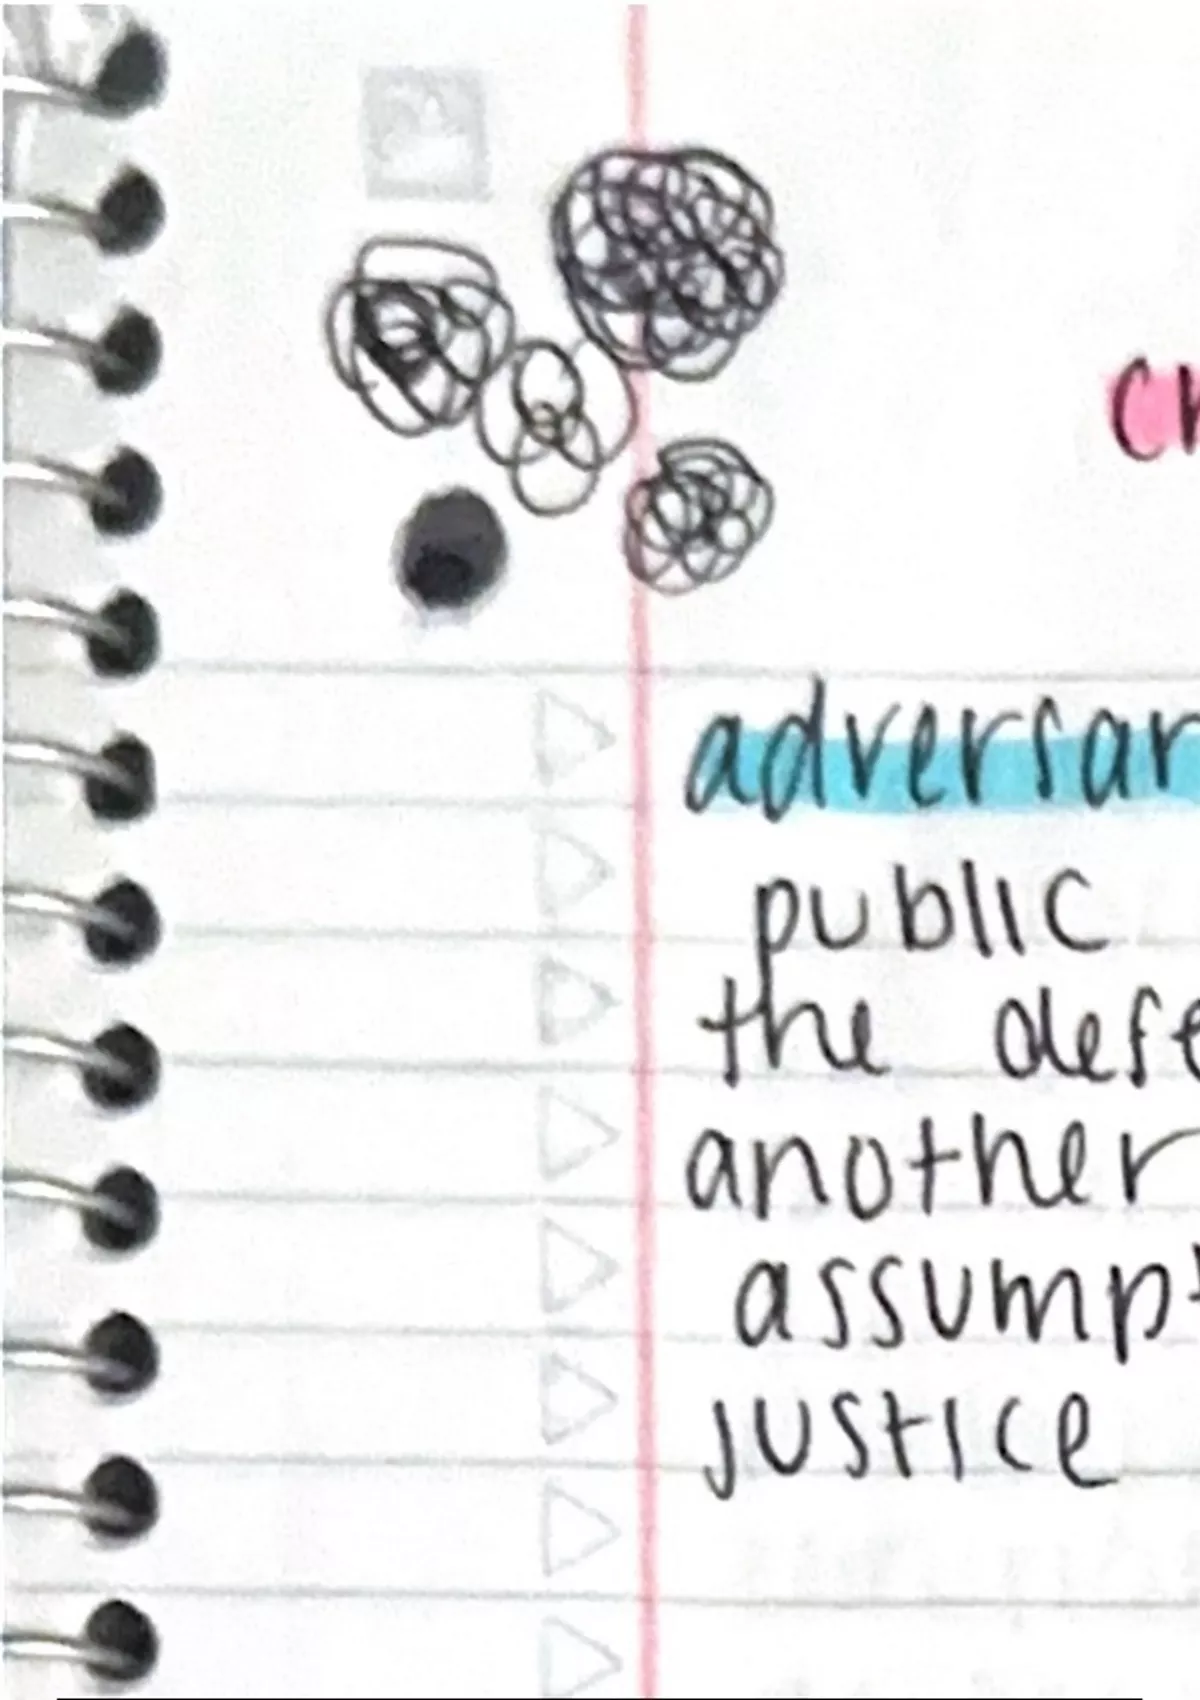 adversar
public
the defe
another
assumpt
justice